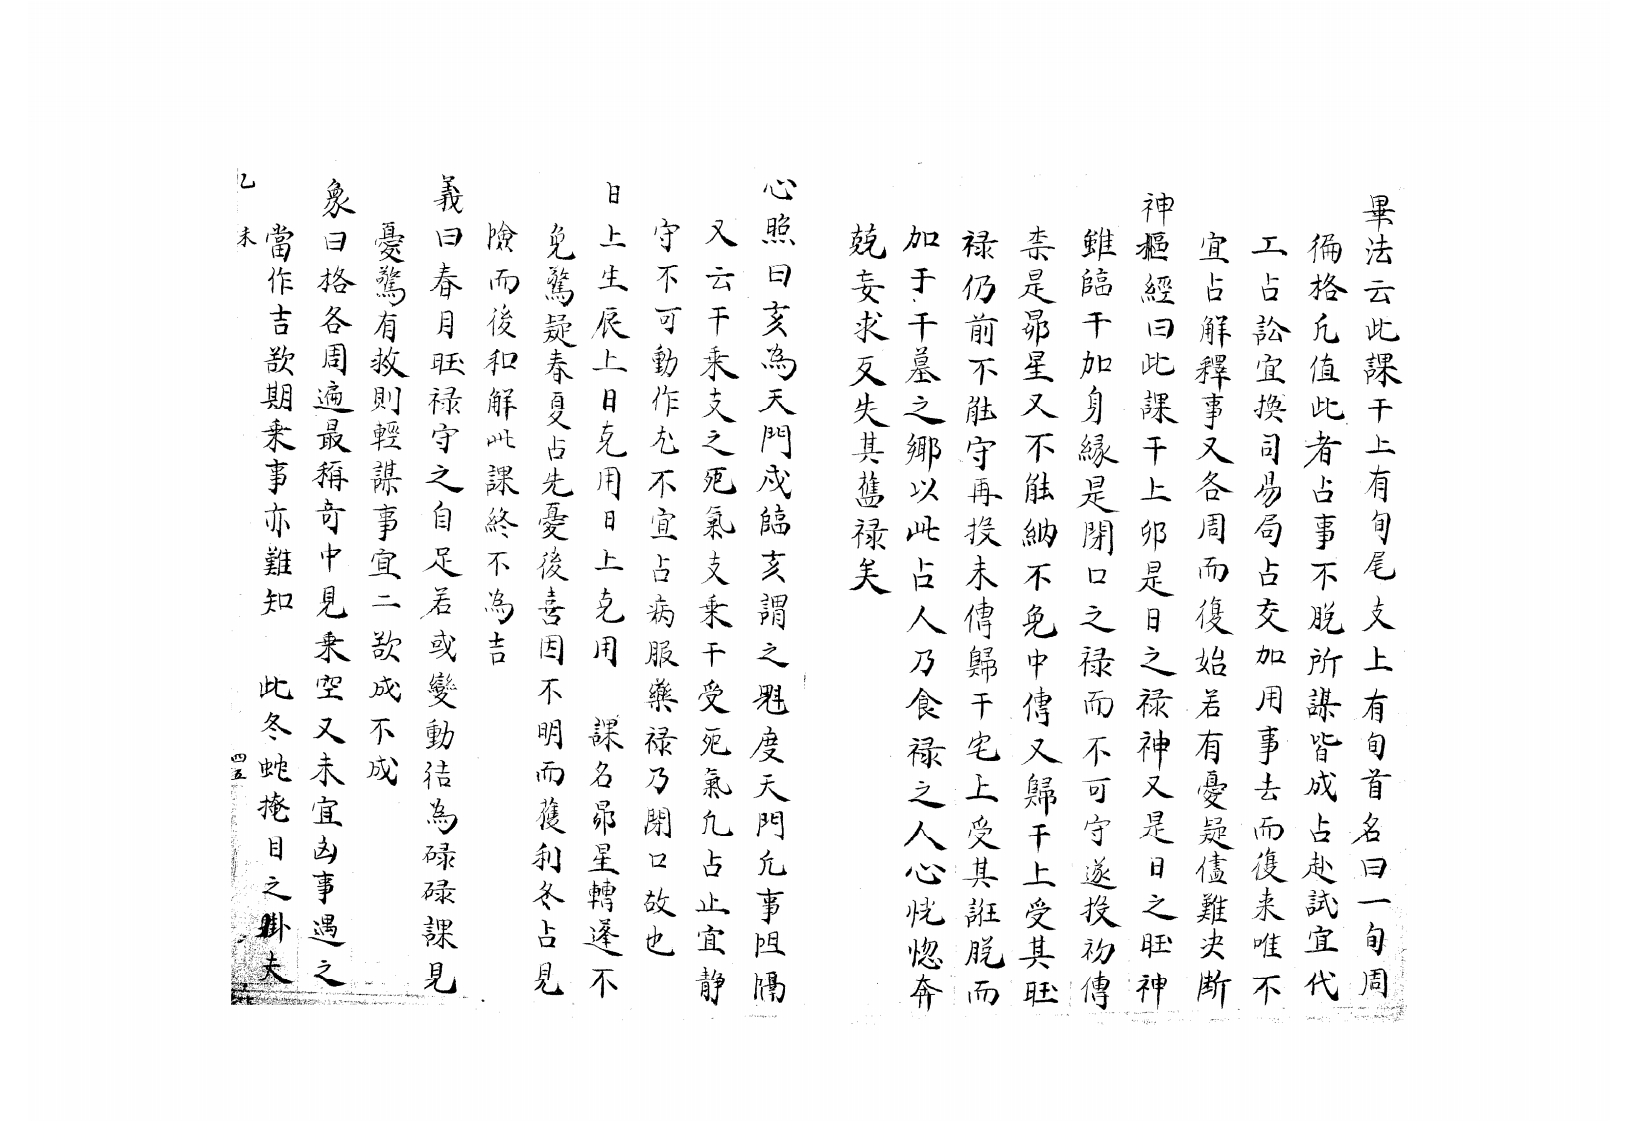 畢法云此課干上有旬尾支上有旬首名曰一旬周
徧格凡值此者占事不脫所謀皆成占赴試宜代
工占訟宜換司易局占交加用事去而復来唯不
宜占解釋事又各周而復始若有憂疑儘難决斷
神樞經曰此課干上卯是日之禄神又是日之旺神
雖臨干加身縁是閉口之禄而不可守遂投初傳
柰是昴星又不能納不免中傳又歸干上受其旺
禄仍前不能守再投末傳歸干宅上受其誑脫而
加于干墓之鄉以此占人乃食禄之人心恍惚奔
兢妄求反失其舊禄矣
心照曰亥為天門戍臨亥謂之魁度天門凡事阻隔
又云干乘支之死氣支乘干受死氣凡占止宜静
守不可動作尤不宜占病服藥禄乃閉口故也
日上生辰上日克用日上克用　課名昴星轉逢不
免驚疑春夏占先憂後喜因不明而獲利冬占見
險而後和解此課終不為吉
義曰春月旺禄守之自足若或變動徒為碌碌課見
憂驚有救則輕謀事宜二欲成不成
象曰格各周遍最稱奇中見乘空又未宜凶事遇之
當作吉欲期乘事亦難知　此冬蛇掩目之掛夫
乙未
四五